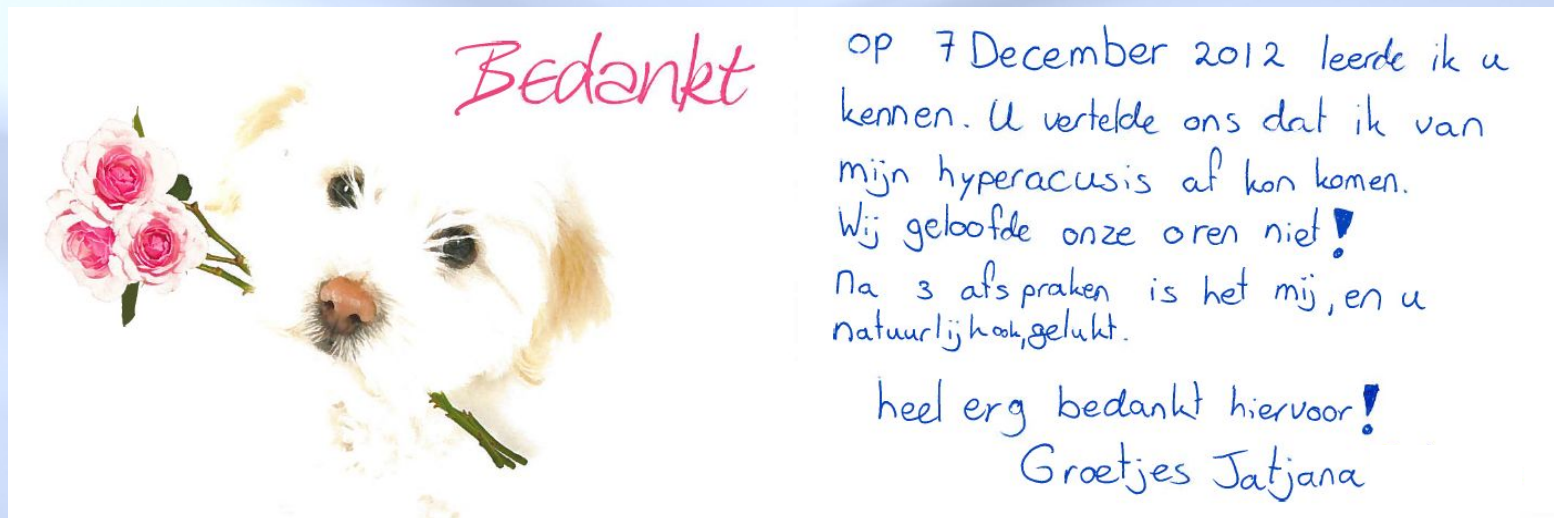 Bedankt
op 7 December 2012 leerde ik u
kennen. U vertelde ons dat ik van
mijn hyperacusis af kon komen.
Wij geloofde onze oren niet!
Na 3 afspraken is het mij, en u
natuurlijk ook, gelukt.
heel erg bedankt hiervoor!
Groetjes Tatjana